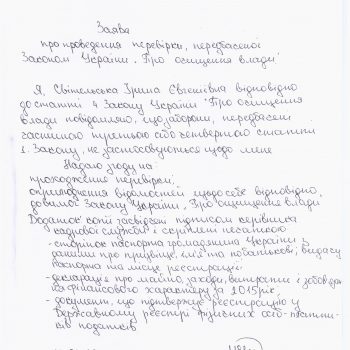 Заява
про проведення перевірки, передбаченої
Законом України „Про очищення влади"
Я, Світельська Ірина Євгеніївна відповідно
до статті 4 Закону України "Про очищення
влади повідомляю, що заборони, передбачені
частиною третьою або четвертою статті
1. Закону, не застосовуються щодо мене
Надаю згоду на:
проходження перевірки;
оприлюднення відомостей щодо себе відповідно,
до вимог Закону України „Про очищення влади
Додаток: копії засвідчені підписом керівника
кадрової служби і скріплені печаткою
- сторінок паспорта громадянина України з
даними про прізвище, ім'я та по батькові, видачу
паспорта та місце реєстрації
- декларація про майно, доходи, витрати і зобов'яз
фінансового характеру за 2015 рік
- документ, що підтверджує реєстрацію у
Державному реєстрі фізичних осіб - платни-
ків податків